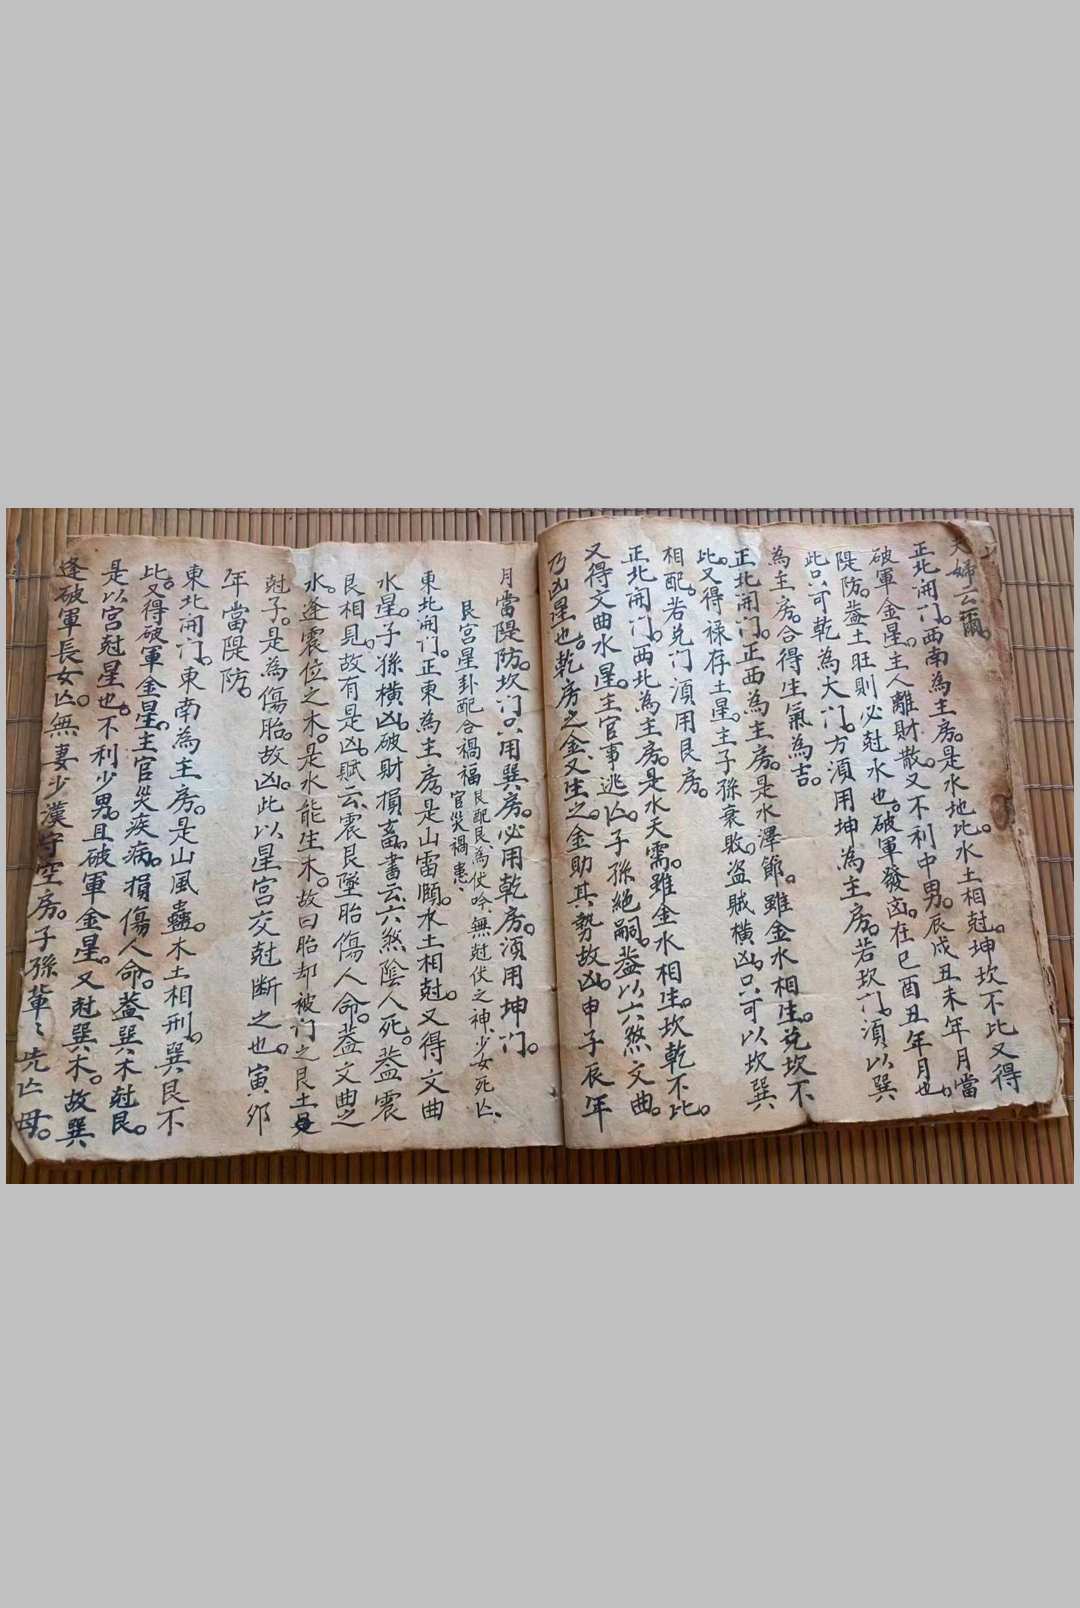 夫婦云爾。
正北開门。西南為主房。是水地比。水土相尅。坤坎不比又得
破軍金星。主人離財散。又不利中男。辰戌丑未年月當
隄防。蓋土旺則必尅水也。破軍發凶。在巳酉丑年月也。
此只可乾為大门。方湏用坤為主房。若坎门。湏以巽
為主房。合得生氣為吉。
正北開门。正西為主房。是水澤節。雖金水相生。兌坎不
比。又得禄存土星。主子孫衰敗。盗賊橫凶。只可以坎巽
相配。若兌门湏用艮房。
正北開门。西北為主房。是水天需。雖金水相生。坎乾不比。
又得文曲水星。主官事逃凶。子孫絕嗣。蓋以六煞文曲。
乃凶星也。乾房之金又生之。金助其勢故凶。申子辰年
月當隄防。坎门只用巽房。必用乾房。湏用坤门。
艮宫星卦配合禍福 艮配艮為伏吟、無尅伏之神、少女死亾、
官災禍患
東北開门。正東為主房。是山雷頤。木土相尅。又得文曲
水星。子孫橫凶。破財損畜。書云、六煞陰人死。蓋震
艮相見。故有是凶。賦云、震艮墜胎傷人命。蓋文曲之
水。逢震位之木。是水能生木。故曰胎却被门之艮土
尅子。是為傷胎。故凶。此以星宫交尅断之也。寅卯
年當隄防。
東北開门。東南為主房。是山風蠱。木土相刑。巽艮不
比。又得破軍金星。主官災疾病。損傷人命。蓋巽木尅艮。
是以宫尅星也。不利少男。且破軍金星。又尅巽木。故巽
逢破軍長女亾。無妻少漢守空房。子孫輩〻先亾母。